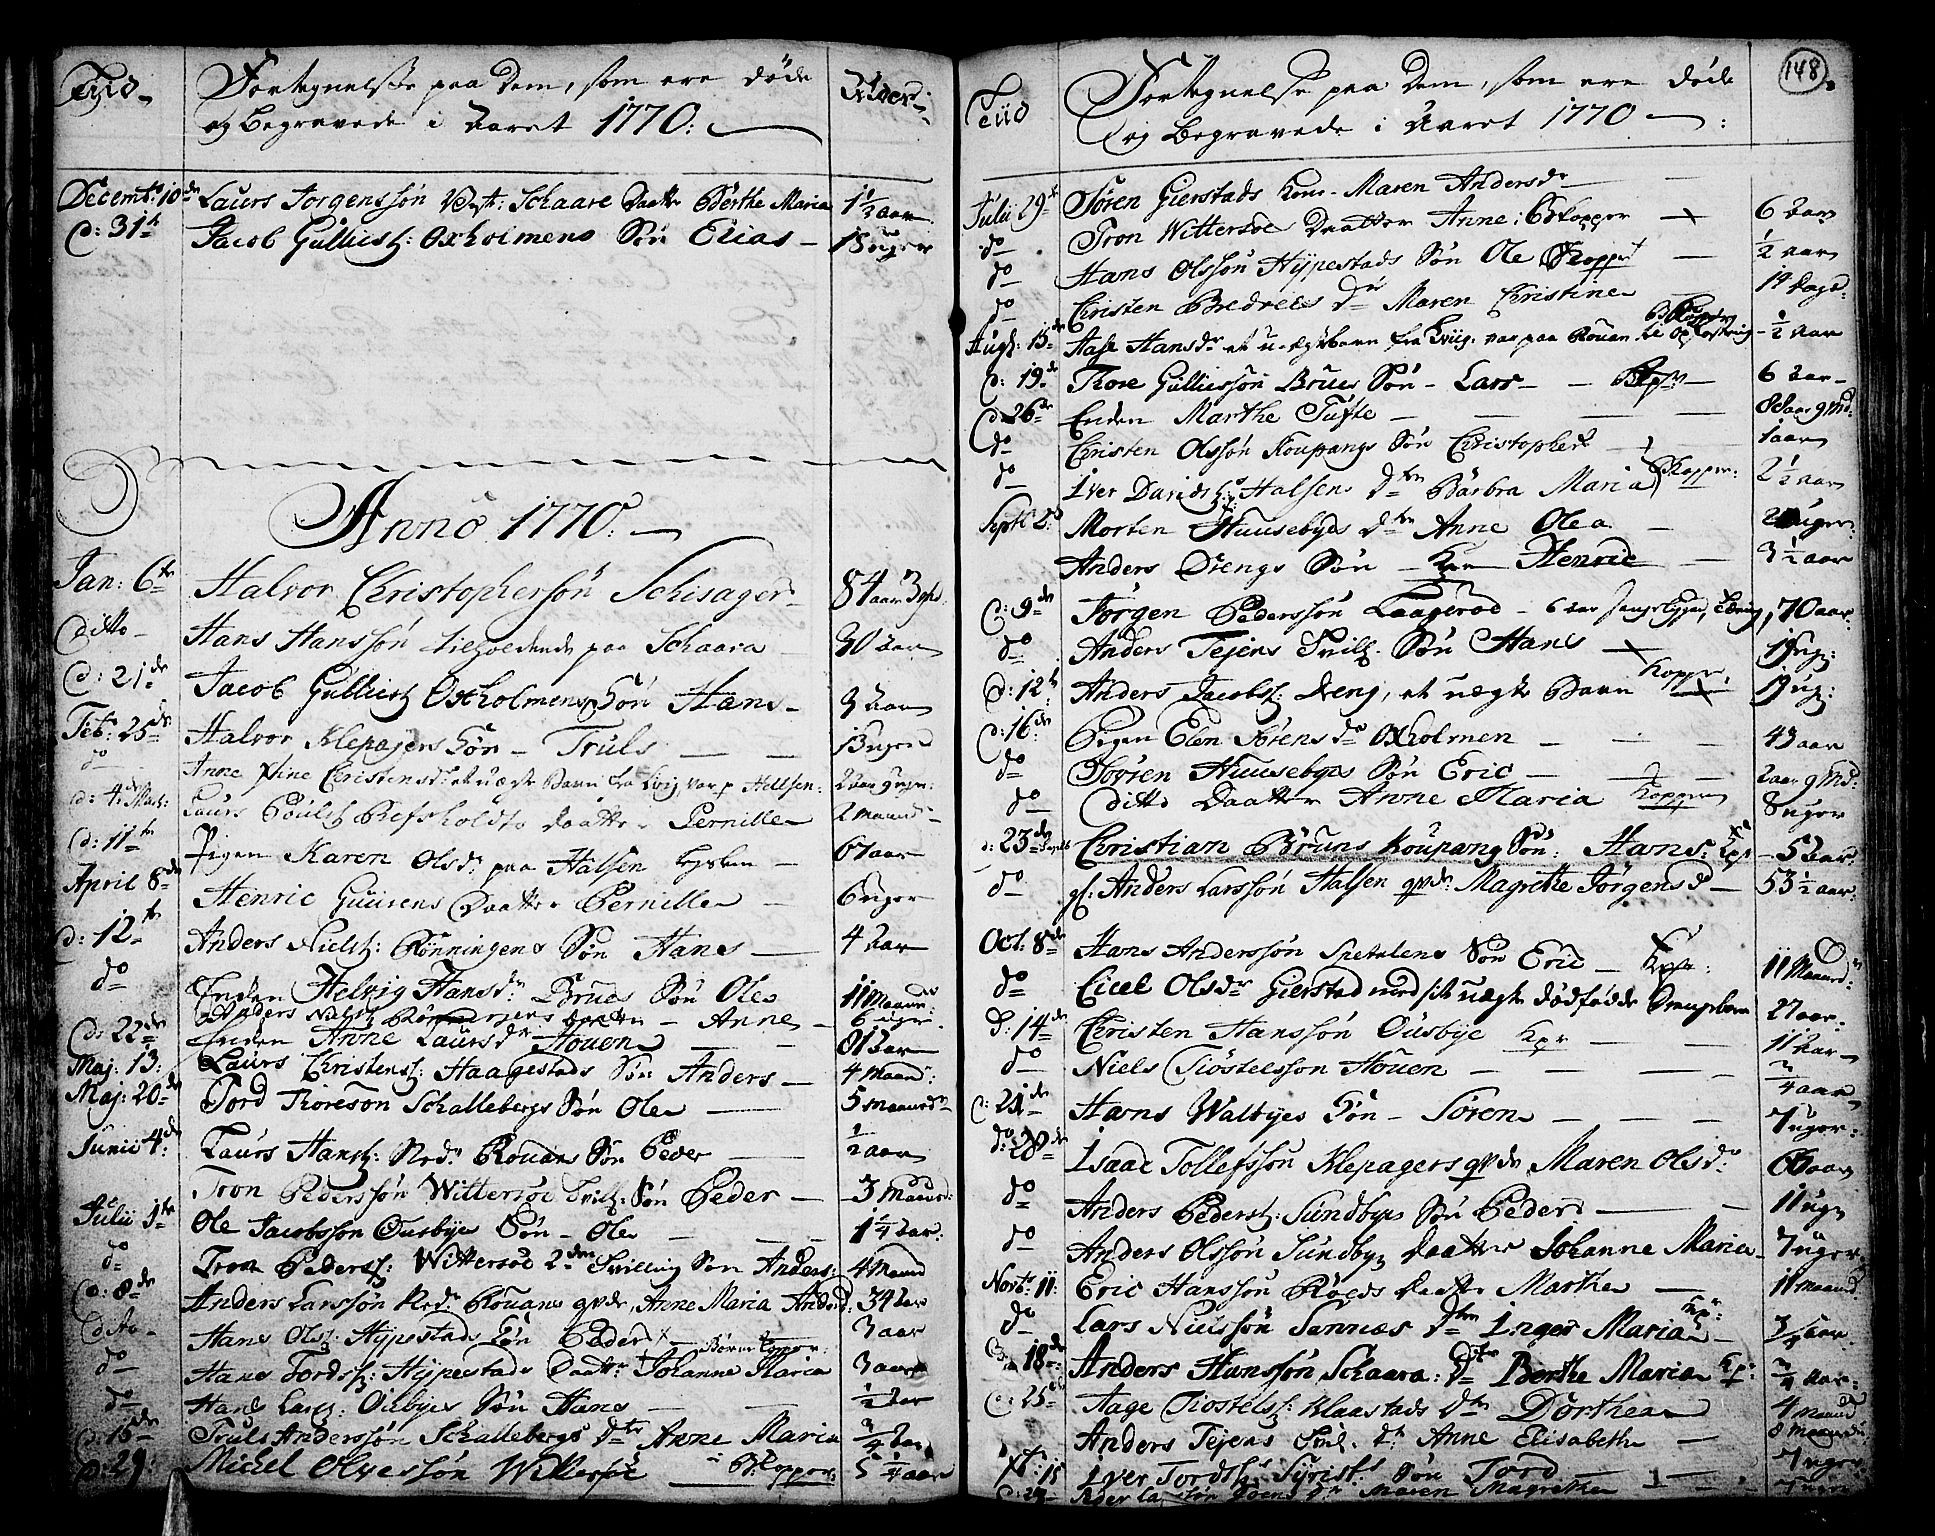 Tiid
Fortegnelse paa Dem, som ere døde
og begravede i Aaret 1770:
Alder
Decembr 10de Laurs Jorgenssøn Schaare Daatter Berthe Maria 1 1/2 aar
d: 31te Jacob Gullikss: Oxholmens Søn Elias 15 uger
Anno 1770:
Jan: 6te Halvor Christophersøn Schisager 84 aar 3 md:
ditto Hans Hanssøn tilholdende paa Schaara 30 aar
d: 21de Jacob Gulliks: Oxholmens Søn Hans 3 aar
Feb: 25de Halvor Klepagers Søn Truls 13 uger
do Anne Stine Christensdr et uægte Barn fra, var p. Hellsen: 2 aar 9 uger:
d: 4de Mart: Laurs Refsholdts daatter Pernille 2 maand
d: 11te Pigen Karen Olsdr paa Halsen 67 aar
April 8de Henric Guurens Daatter Pernille 6 uger
d: 12te Anders Niels: Rønningens Søn Hans 4 aar
do Enken Helvig Hansdr Brues Søn Ole 11 Maaned
Anders Niels: Rønningens daatter Anne 6 uger
d: 22de Enken Anne Laursdr Houen 81 aar
Maj: 13: Laurs Christens: Haagestads Søn Anders 4 Maand:
Maj: 20de Tord Thoresøn Schallebergs Søn Ole 5 maand
Junii 4de Laurs Hans: Nedr Rouans Søn Peder 1/2 aar
Tron Pederssøn Wittersøe Tvill: Søn Peder 3 Maand:
Julii 1te Ole Jacobssøn Ousbyes Søn Ole 1 1/4 aar:
do Tron Peders: Wittersøe 2den Tvilling Søn Anders: 4 Maand
d: 8de Anders Larssøn Nedr Rouans qvde Anne Maria Andersd: 34 aar
dito Hans Ols: Hypestads Søn Peder 3 aar
Børne Kopper:
do Hans Tords: Hypestads Daatter Johanne Maria 3 aar
do Hans Lars: Ousbyes Søn Hans 1/2 aar
d: 15de Truls Anderssøn Schallebergs dtr Anne Maria 3/4 aar
d: 29: Michel Olvessøn Wittersøe B: Kopper: 5 1/4 aar
148
Tiid
Fortegnelse paa Dem, som ere døde
og begravede i Aaret 1770
Julii 29de Søren Gierstads Kone Maren Andersdr
do Tron Wittersøe Daatter Anne: B Kopper 6 aar
do Hans Olssøn Hypestads Søn Ole Kopper 1/2 aar
do Christen Bredveis dtr Maren Christine 14 dage:
B Kopper
Augs: 15de Aase Hansdr et uægte barn fra Qviig. var paa Rouan til Opfostring 1/2 aar
d: 19de Thore Gulliessøn Brues Søn Lars 6 aar
d 26de Enken Marthe Tufte 8 aar 9 Md:
do Christen Olssøn Koupangs Søn Christopher 1 aar
do Iver Davids: Halsens dtter Barbra Maria Kopper: 2 1/2 aar
Septr 2de Morten Huusebyes dtter Anne Olea uger:
Anders Drengs Søn Henric 3 1/2 aar
d: 9de Jørgen Pederssøn Laagerøe 6 aar sengeliggend, 70 aar:
do Anders Tejens Tvill: Søn Hans 19 ug:
d: 12te Anders Jacobs: Dreng, et uægte Barn Kopper, 19 ug:
d: 16de Pigen Elen Sørensdr Oxholmen 43 aar
do Søren Huusebyes Søn Eric 2 aar 9 Md:
do ditto Daatter Anne Maria Kopper 8 uger
d: 23de Septb Christian Bruns Koupang Søn: Hans: Kpr 5 aar:
do gl: Anders Larssøn Halsen qvde: Magrethe Jørgensd 53 1/2 aar
Oct: 8de Hans Anderssøn Spetalens Søn Eric Kpr: 11 Maaned
do Cicel Olsdr Gierstad med sit uægte dødfødde Drengebarn 27 aar:
d: 14de Christen Hanssøn Ousbye Kpr 11 aar
do Niels Tiøstelssøn Houen 3/4 aar
d: 21de Hans Walbyes Søn Søren 7 uger:
d: 28de Isaac Tollefssøn Klepagers qvde Maren Olsdr 66 aar
do Anders Peders: Sundbyes Søn Peder 11 ugr
do Anders Olssøn Sundbye Daatter Johanne Maria 7 uger
Novbr 11: Eric Hanssøn Røeds Daatter Marthe 11 maaned
do Lars Nielssøn Sannæs dtter Inger Maria Kpr 3/4 aar
d: 18de Anders Hanssøn Schaara: dtr Berthe Maria Kpr: 3/4 aar:
d: 25de Aage Tiostels: Klaastads dtr Dorthea 4 maaned
Anders Tejens Tvil: dtr Anne Elisabeth 8 Maaned
Xbr: 15 Iver Tords: Syrists Søn Tord 7 uger
d: 27 dtr Maren Magrethe 7 uger